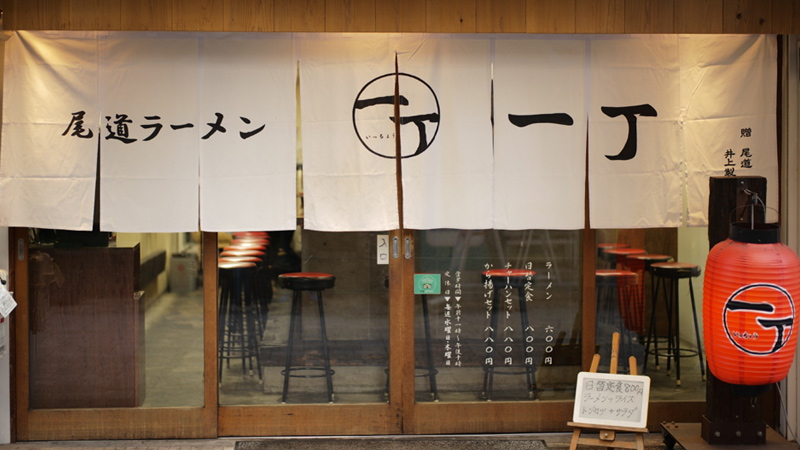 尾道ラーメン
一丁
いっちょう
一丁
贈 尾道
井上製
入口
ラーメン 六〇〇円
日替定食 八〇〇円
チャーハンセット 八八〇円
から揚げセット 八八〇円
営業時間▼午前十一時〜午後十時
定休日▼毎週水曜日木曜日
一丁
いっちょう
日替定食 800円
ラーメン+ライス
トンカツ+サラダ